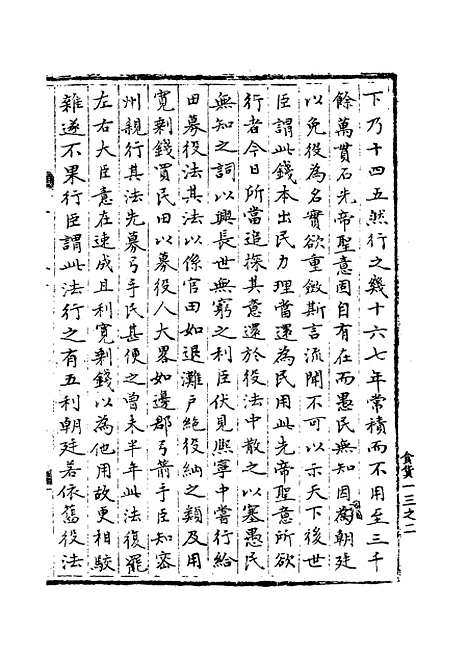 下乃十四五然行之幾十六七年常積而不用至三千
餘萬貫石先帝聖意固自有在而愚民無知因為朝廷
以免役為名實欲重斂斯言流聞不可以示天下後世
臣謂此錢本出民力理當還為民用此先帝聖意所欲
行者今日所當追探其意還於役法中散之以塞愚民
無知之詞以興長世無窮之利臣伏見熙寧中嘗行給
田募役法其法以係官田如退灘戶絕役納之類及用
寬剩錢買民田以募役人大畧如邊郡弓箭手臣知密
州親行其法先募弓手民甚便之曾未半年此法復罷
左右大臣意在速成且利寬剩錢以為他用故更相駮
雜遂不果行臣謂此法行之有五利朝廷若依舊役法
食貨一三之二